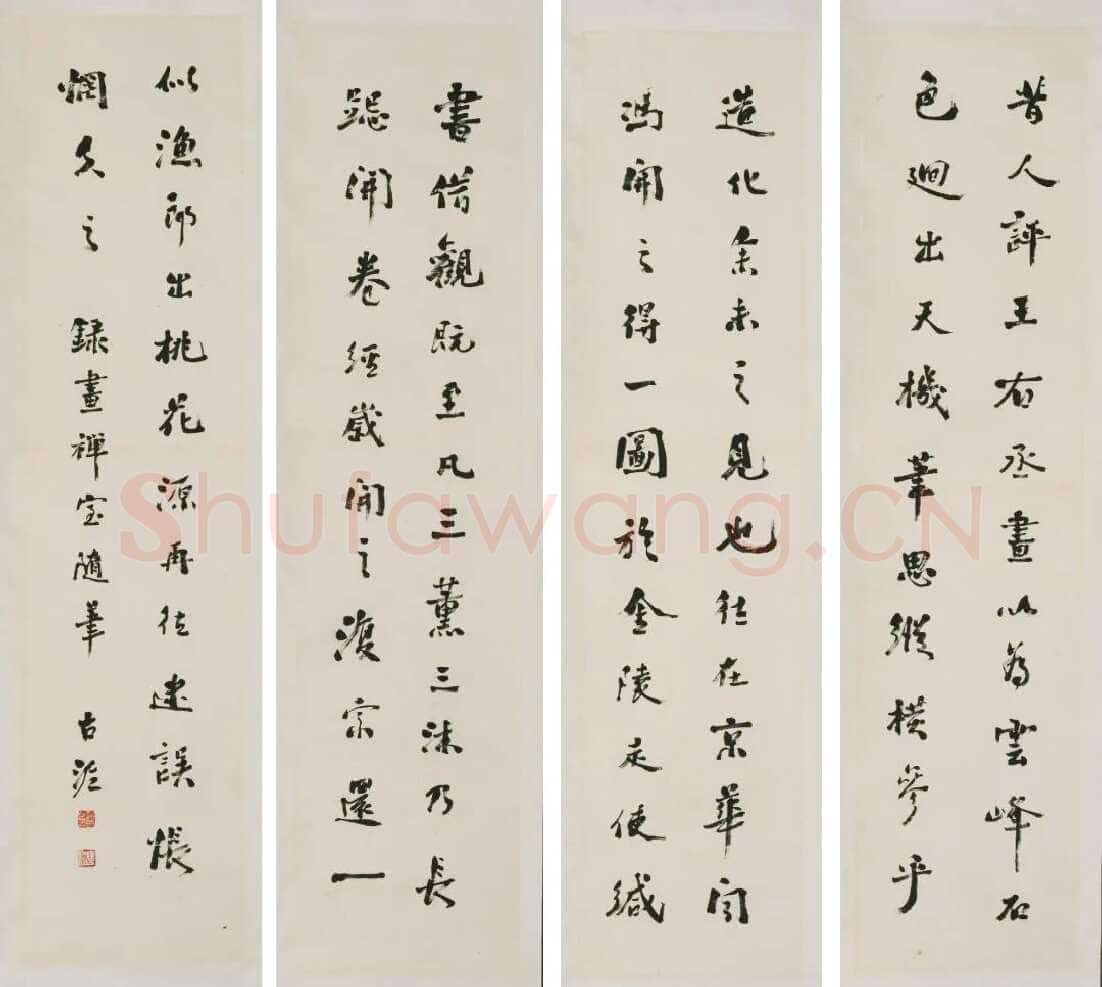 昔人評王右丞畫以為雲峰石
色迥出天機筆思縱橫參乎
造化余未之見也往在京華聞
馮開之得一圖於金陵走使緘
書借觀既至凡三薰三沐乃長
跽開卷經歲開之復索還一
似漁郎出桃花源再往迷誤悵
惘久之 錄畫禪室隨筆 古泥
Shufawang.CN